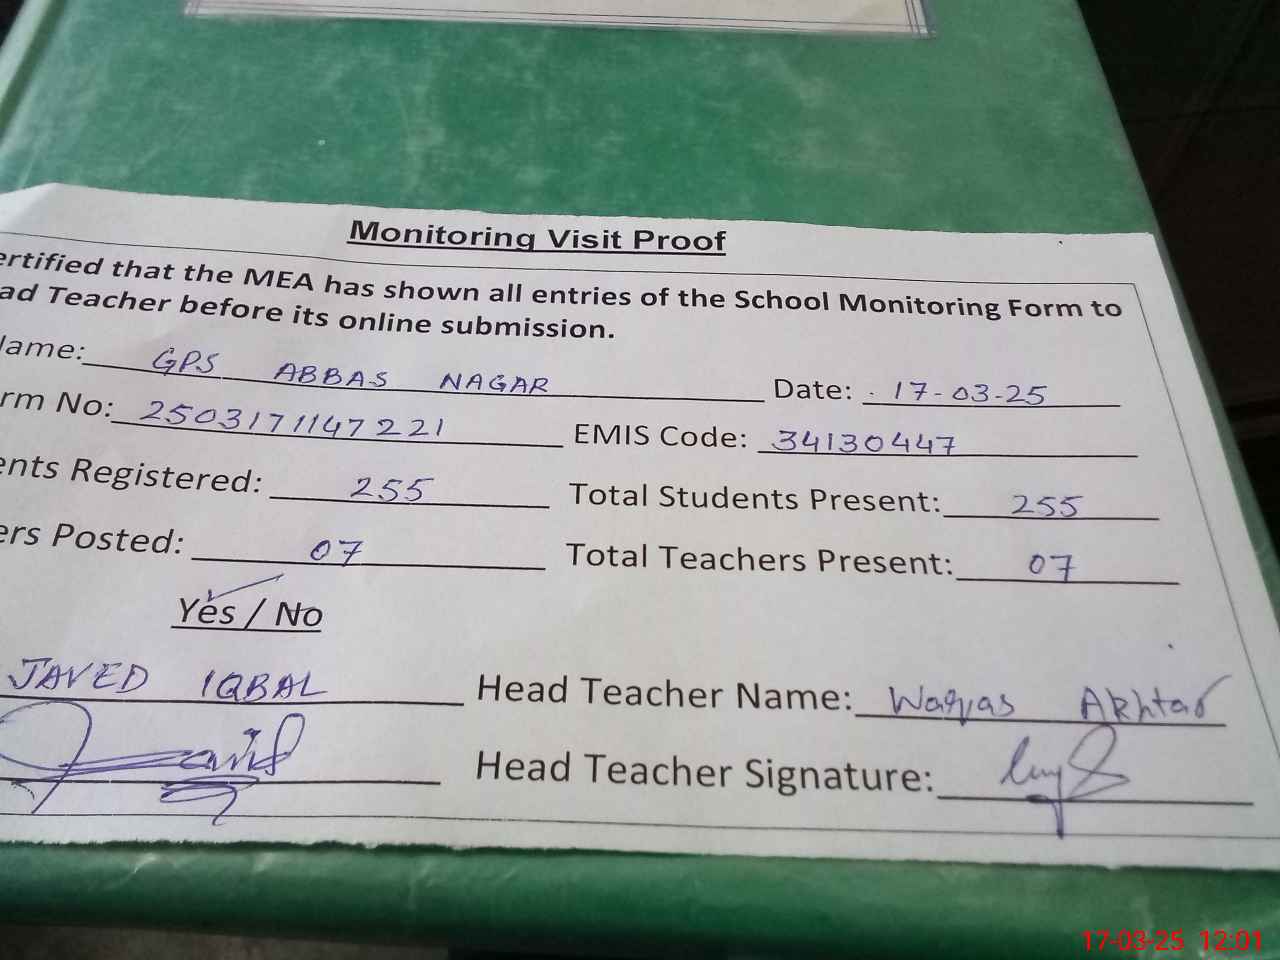 Monitoring Visit Proof
ertified that the MEA has shown all entries of the School Monitoring Form to
ad Teacher before its online submission.
ame: GPS ABBAS NAGAR Date: 17-03-25
rm No: 2503171147221 EMIS Code: 34130447
ents Registered: 255 Total Students Present: 255
ers Posted: 07 Total Teachers Present: 07
Yes / No
JAVED IQBAL Head Teacher Name: Waqas Akhtar
Head Teacher Signature:
17-03-25 12:01